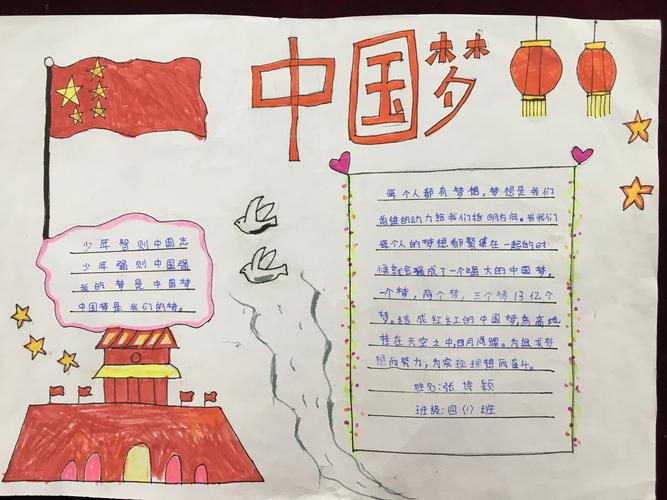 中国梦
少年智则中国志
少年强则中国强
我的梦是中国梦
中国梦是我们的梦。
每个人都有梦想,梦想是我们
前进的动力给我们指明方向。当我们
每个人的梦想都聚集在一起的时
候就会编成了一个强大的中国梦,
一个梦,两个梦,三个梦13亿个
梦。结成红红的中国梦高高地
挂在天空之中日月同辉。为追求梦
想而努力,为实现理想而奋斗。
姓名:张诗颖
班级:四(1)班